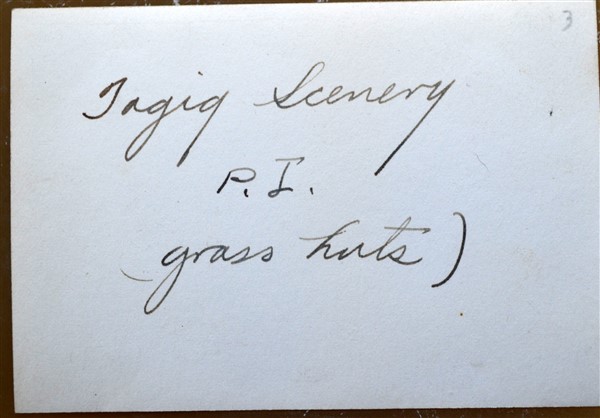 3
Tagig Scenery
P.I.
(grass huts)